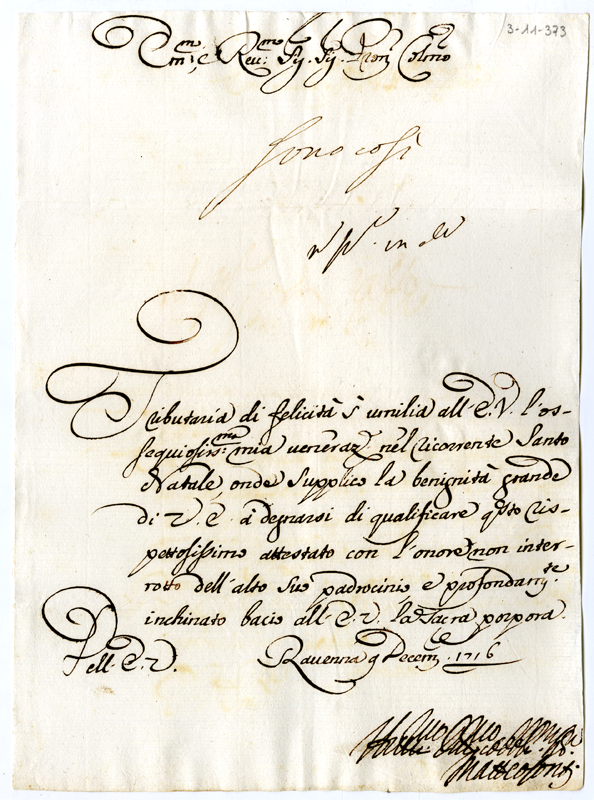 3-11-373
Em:ᵉⁿ e Reu:ᵐᵒ Sig. Sig. Pron Colmo
Tributaria di felicità s' umilia all' E. V. l'os-
sequiosiss:ᵐᵃ mia veneraz nel ricorrente Santo
Natale, onde supplico la benignità grande
di V. E. à degnarsi di qualificare qsto ris-
pettosissimo attestato con l'onore non inter-
rotto dell' alto suo padrocinio e profondamᵗᵉ
inchinato bacio all' E. V. la sacra porpora.
Dell' E. V. Rauenna 9 Decem. 1716
Matteo